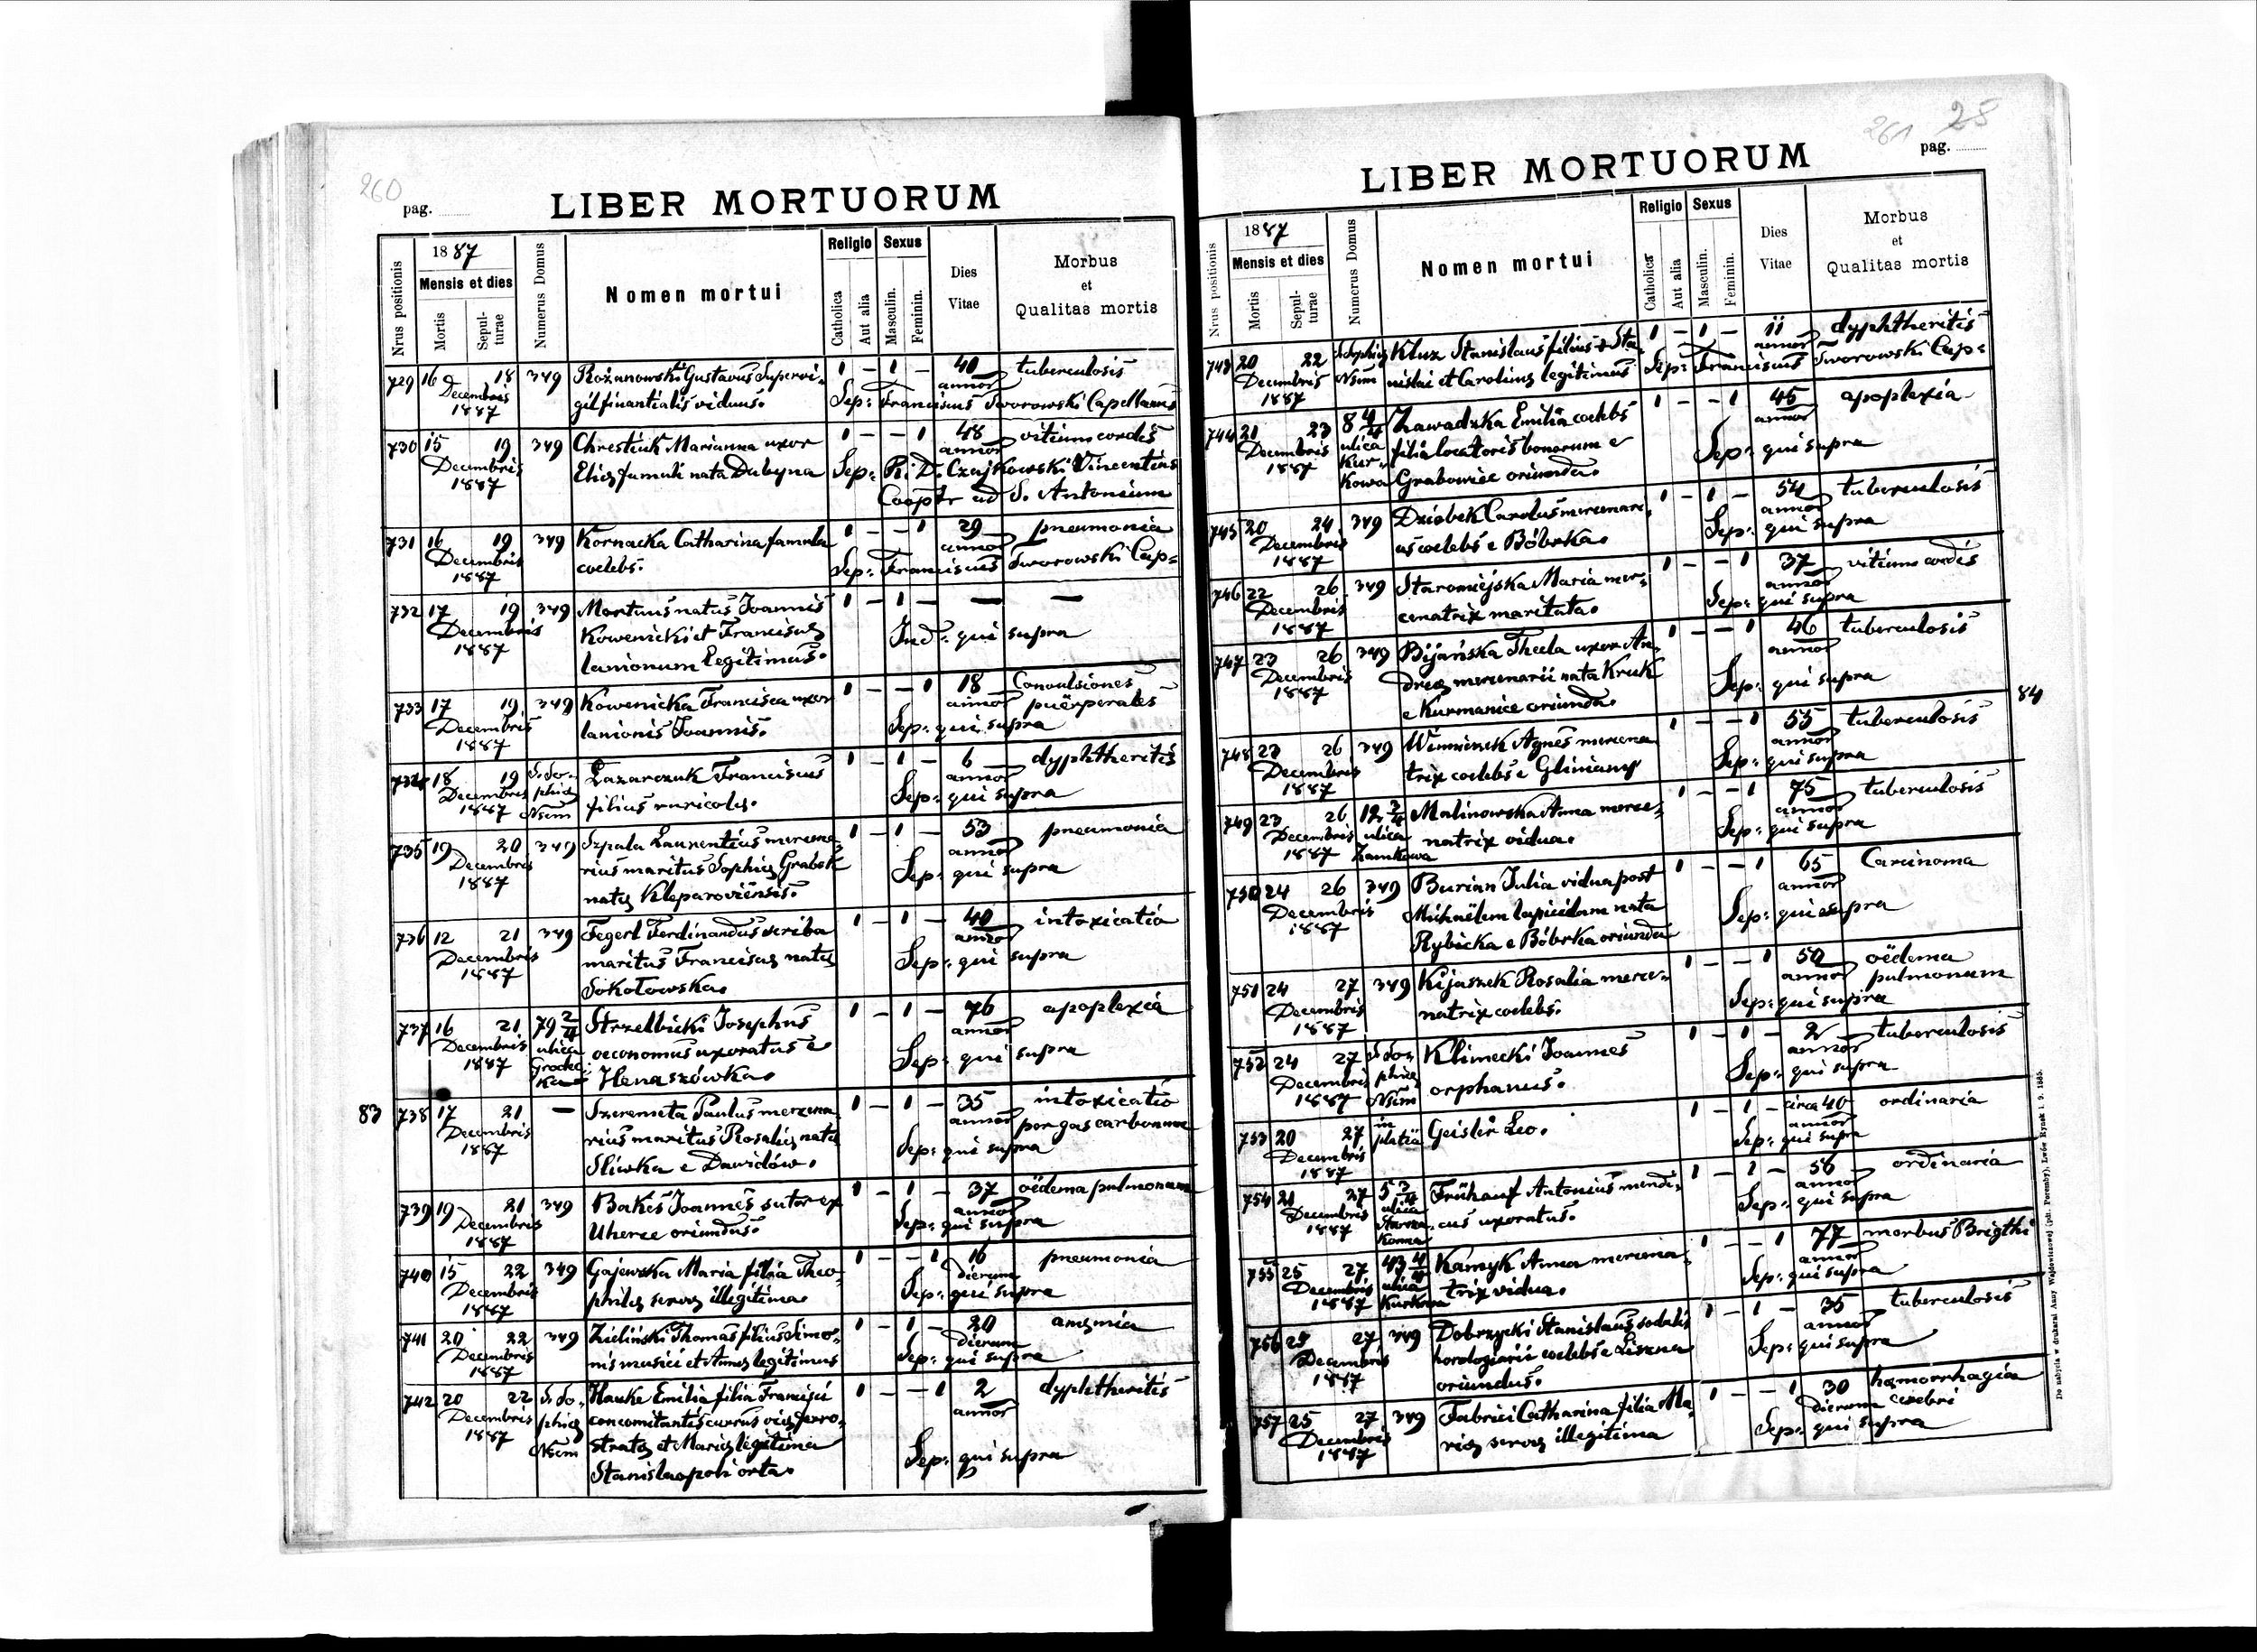 260
pag.
LIBER MORTUORUM
Nrus positionis
1887
Mensis et dies
Mortis
Sepulturae
Numerus Domus
Nomen mortui
Religio
Catholica
Aut alia
Sexus
Masculin.
Feminin.
Dies
Vitae
Morbus
et
Qualitas mortis
729 16 18 349 Rożanowski Gustavus Supervi- 1 – 1 – 40 tuberculosis
Decembris gil finantialis viduus. annor
1887 Sep: Franciscus Tworowski Capellanus
730 15 19 349 Chrestiuk Marianna uxor 1 – – 1 48 vitium cordis
Decembris Eliæ famuli nata Dubyna annor
1887 Sep: R. D. Czajkowski Vincentius
Cooptr ad S. Antonium
731 16 19 349 Kornacka Catharina famula 1 – – 1 29 pneumonia
Decembris coelebs. annor
1887 Sep: Franciscus Tworowski Cap:
732 17 19 349 Mortuus natus Joannis 1 – 1 – — —
Decembris Kowenicki et Franciscæ
1887 lanionum legitimus. Ind: qui supra
733 17 19 349 Kowenicka Francisca uxor 1 – – 1 18 Convulsiones
Decembris lanionis Joannis. annor puërperales
1887 Sep: qui supra
734 18 19 S. So- Łazarczuk Franciscus 1 – 1 – 6 dyphtheritis
Decembris phiæ filius ruricolæ. annor
1887 Nsim Sep: qui supra
735 19 20 349 Szpala Laurentius mercena- 1 – 1 – 53 pneumonia
Decembris rius maritus Sophiæ Grabsk annor
1887 natæ Kleparoviensis. Sep: qui supra
736 12 21 349 Fegerl Ferdinandus scriba 1 – 1 – 40 intoxicatio
Decembris maritus Franciscæ natæ annor
1887 Sokołowska. Sep: qui supra
737 16 21 79 2/4 Strzelbicki Josephus 1 – 1 – 76 apoplexia
Decembris ulica oeconomus uxoratus e annor
1887 Grodec- Henaszówka. Sep: qui supra
ka
83
738 17 21 — Szeremeta Paulus mercena- 1 – 1 – 35 intoxicatio
Decembris rius maritus Rosaliæ natæ annor per gas carbonum
1887 Sliwka e Dawidów. Sep: qui supra
739 19 21 349 Bakes Joannes sutor ex 1 – 1 – 37 oëdema pulmonum
Decembris Uherce oriundus. annor
1887 Sep: qui supra
740 15 22 349 Gajewska Maria filia Theo- 1 – – 1 16 pneumonia
Decembris philæ servæ illegitima. dierum
1887 Sep: qui supra
741 20 22 349 Zieliński Thomas filius Simo- 1 – 1 – 20 anæmia
Decembris nis musici et Annæ legitimus dierum
1887 Sep: qui supra
742 20 22 S. So- Hauke Emilia filia Francisci 1 – – 1 2 dyphtheritis
Decembris phiæ concomitantis currus viæ ferro- annor
1887 Nsim stratæ et Mariæ legitima
Stanislaopoli orta. Sep: qui supra
261 28
pag.
LIBER MORTUORUM
Nrus positionis
1887
Mensis et dies
Mortis
Sepulturae
Numerus Domus
Nomen mortui
Religio
Catholica
Aut alia
Sexus
Masculin.
Feminin.
Dies
Vitae
Morbus
et
Qualitas mortis
743 20 22 S. Sophiæ Kluz Stanislaus filius Sta- 1 – 1 – 11 dyphtheritis
Decembris Nsim nislai et Carolinæ legitimus annor
1887 Sep: Franciscus Tworowski Cap:
744 21 23 8 4/4 Zawadzka Emilia coelebs 1 – – 1 45 apoplexia
Decembris ulica filia locatoris bonorum e annor
1887 Kur- Grabowiec oriunda. Sep: qui supra
kowa
745 20 24 349 Dziobek Carolus mercenari- 1 – 1 – 54 tuberculosis
Decembris us coelebs e Bóbrka. annor
1887 Sep: qui supra
746 22 26 349 Staromiejska Maria mer- 1 – – 1 37 vitium cordis
Decembris cenatrix maritata. annor
1887 Sep: qui supra
747 23 26 349 Bijańska Thecla uxor An- 1 – – 1 46 tuberculosis
Decembris dreæ mercenarii nata Kruk annor
1887 e Kurmanice oriunda. Sep: qui supra
84
748 23 26 349 Agnes mercena- 1 – – 1 55 tuberculosis
Decembris trix coelebs e Gliniany annor
1887 Sep: qui supra
749 23 26 12 3/4 Malinowska Anna merce- 1 – – 1 75 tuberculosis
Decembris ulica natrix vidua. annor
1887 Zamkowa Sep: qui supra
750 24 26 349 Burian Julia vidua post 1 – – 1 65 Carcinoma
Decembris Michaëlem lapicidam nata annor
1887 Rybicka e Bóbrka oriunda Sep: qui supra
751 24 27 349 Kijaszek Rosalia merce- 1 – – 1 50 oëdema
Decembris natrix coelebs. annor pulmonum
1887 Sep: qui supra
752 24 27 S. So- Klimecki Joannes 1 – 1 – 2 tuberculosis
Decembris phiæ orphanus. annor
1887 Nsim Sep: qui supra
753 20 27 in Geisler Leo. 1 – 1 – circa 40 ordinaria
Decembris platea annor
1887 Sep: qui supra
754 21 27 5 3/4 Frühauf Antonius mendi- 1 – 1 – 56 ordinaria
Decembris ulica cus uxoratus. annor
1887 Sep: qui supra
755 25 27 43 4/4 Kamyk Anna mercena- 1 – – 1 77 morbus Brigthi
Decembris ulica trix vidua. annor
1887 Kurkowa Sep: qui supra
756 25 27 349 Dobrzycki Stanislaus sodalis 1 – 1 – 35 tuberculosis
Decembris horologiarii coelebs e annor
1887 oriundus. Sep: qui supra
757 25 27 349 Fabrici Catharina filia Ma- 1 – – 1 30 hæmorrhagia
Decembris riæ servæ illegitima dierum cerebri
1887 Sep: qui supra
Do nabycia w drukarni Anny Wajdowiczowej (pdt. Poremby), Lwów Rynek l. 9. 1885.